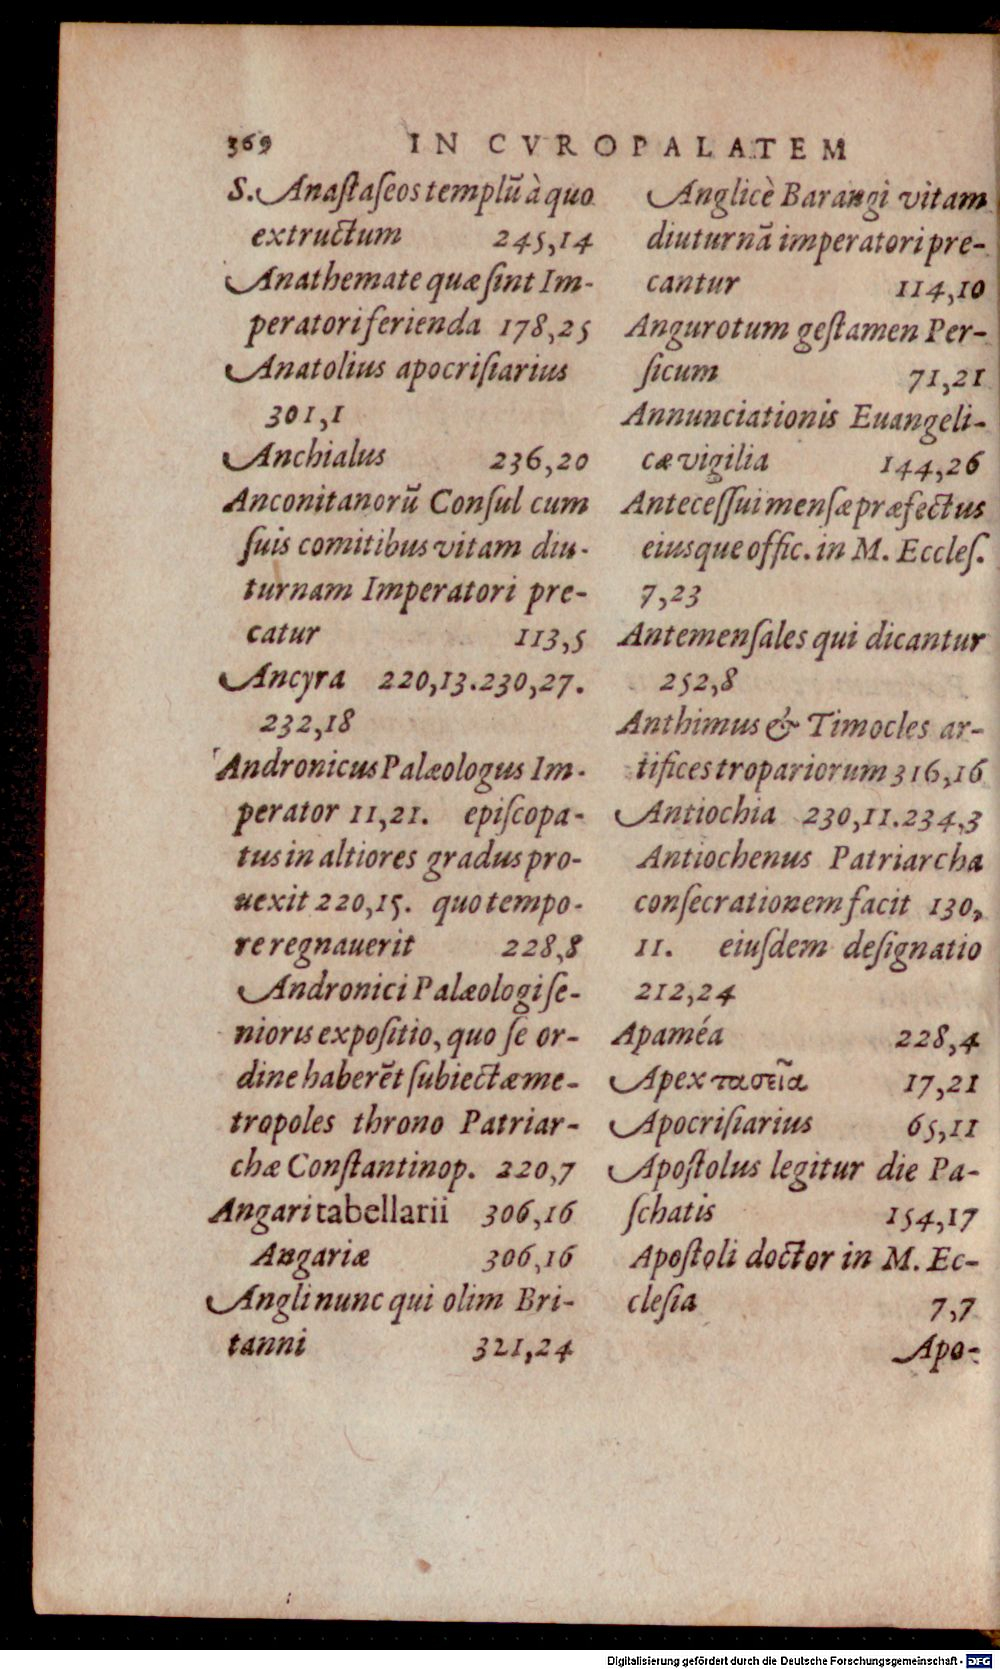 369 IN CVROPALATEM
S. Anaſtaſeos templũ à quo
extructum 245,14
Anathemate quæ ſint Im-
peratori ferienda 178,25
Anatolius apocriſiarius
301,1
Anchialus 236,20
Anconitanorũ Conſul cum
ſuis comitibus vitam diu-
turnam Imperatori pre-
catur 113,5
Ancyra 220,13.230,27.
232,18
Andronicus Palæologus Im-
perator 11,21. epiſcopa-
tus in altiores gradus pro-
uexit 220,15. quo tempo-
re regnauerit 228,8
Andronici Palæologi ſe-
nioris expoſitio, quo ſe or-
dine haberẽt ſubiectæ me-
tropoles throno Patriar-
chæ Conſtantinop. 220,7
Angari tabellarii 306,16
Angariæ 306,16
Angli nunc qui olim Bri-
tanni 321,24
Anglicè Barangi vitam
diuturnã imperatori pre-
cantur 114,10
Angurotum geſtamen Per-
ſicum 71,21
Annunciationis Euangeli-
cæ vigilia 144,26
Anteceſſui menſæ præfectus
eiusque offic. in M. Eccleſ.
7,23
Antemenſales qui dicantur
252,8
Anthimus & Timocles ar-
tifices tropariorum 316,16
Antiochia 230,11.234,3
Antiochenus Patriarcha
conſecrationem facit 130,
11. eiuſdem deſignatio
212,24
Apaméa 228,4
Apex τασεῖα 17,21
Apocriſiarius 65,11
Apoſtolus legitur die Pa-
ſchatis 154,17
Apoſtoli doctor in M. Ec-
cleſia 7,7
Apo-
Digitalisierung gefördert durch die Deutsche Forschungsgemeinschaft - DFG